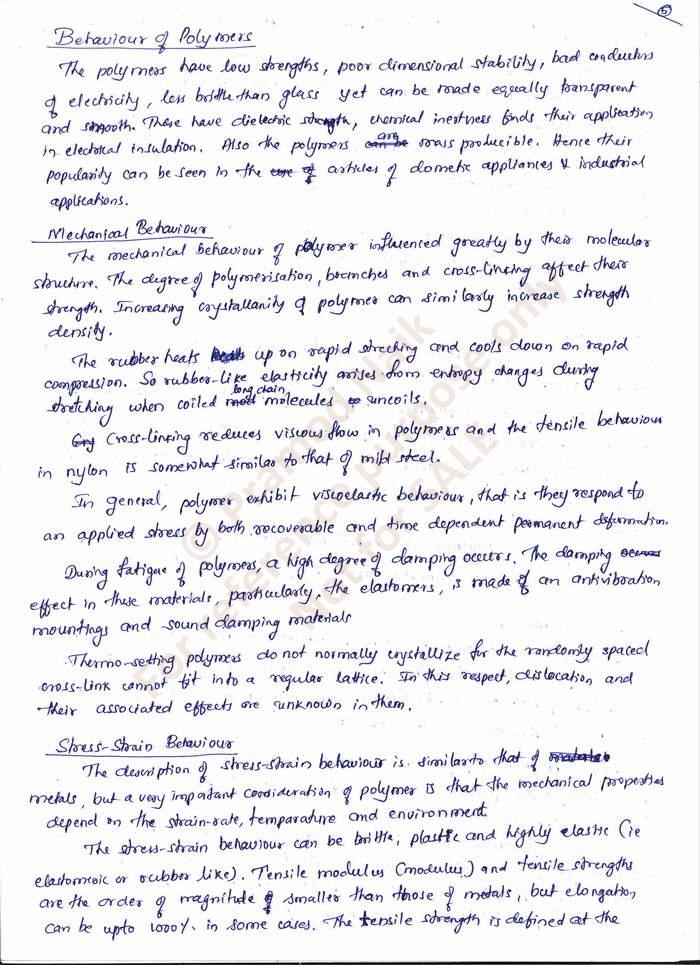 5
Behaviour of Polymers
The polymers have low strengths, poor dimensional stability, bad conductors
of electricity, less brittle than glass yet can be made equally transparent
and smooth. These have dielectric strength, chemical inertness finds their application
in electrical insulation. Also the polymers are mass producible. Hence their
popularity can be seen in the articles of dometic appliances & industrial
applications.
Mechanical Behaviour
The mechanical behaviour of polymer influenced greatly by their molecular
structure. The degree of polymerisation, branches and cross-linking affect their
strength. Increasing crystallanity of polymer can similarly increase strength
density.
The rubber heats up on rapid streching and cools down on rapid
compression. So rubber-like elasticity arises from entropy changes during
stretching when coiled long chain molecules uncoils.
Cross-linking reduces viscous flow in polymers and the tensile behaviour
in nylon is somewhat similar to that of mild steel.
In general, polymer exhibit viscoelastic behaviour, that is they respond to
an applied stress by both recoverable and time dependent permanent deformation.
During fatigue of polymers, a high degree of damping occurs. The damping
effect in these materials, particularly, the elastomers, is made of an antivibration
mountings and sound damping materials
Thermo-setting polymers do not normally crystallize for the randomly spaced
cross-link cannot fit into a regular lattice. In this respect, dislocation and
their associated effects are unknown in them.
Stress-Strain Behaviour
The description of stress-strain behaviour is similar to that of
metals, but a very important consideration of polymer is that the mechanical properties
depend on the strain-rate, temparature and environment.
The stress-strain behaviour can be brittle, plastic and highly elastic (ie
elastomeric or rubber like). Tensile modulus (modulus) and tensile strengths
are the order of magnitude smaller than those of metals, but elongation
can be upto 1000% in some cases. The tensile strength is defined at the
© Pramod Naik
For reference purpose only
Not for SALE